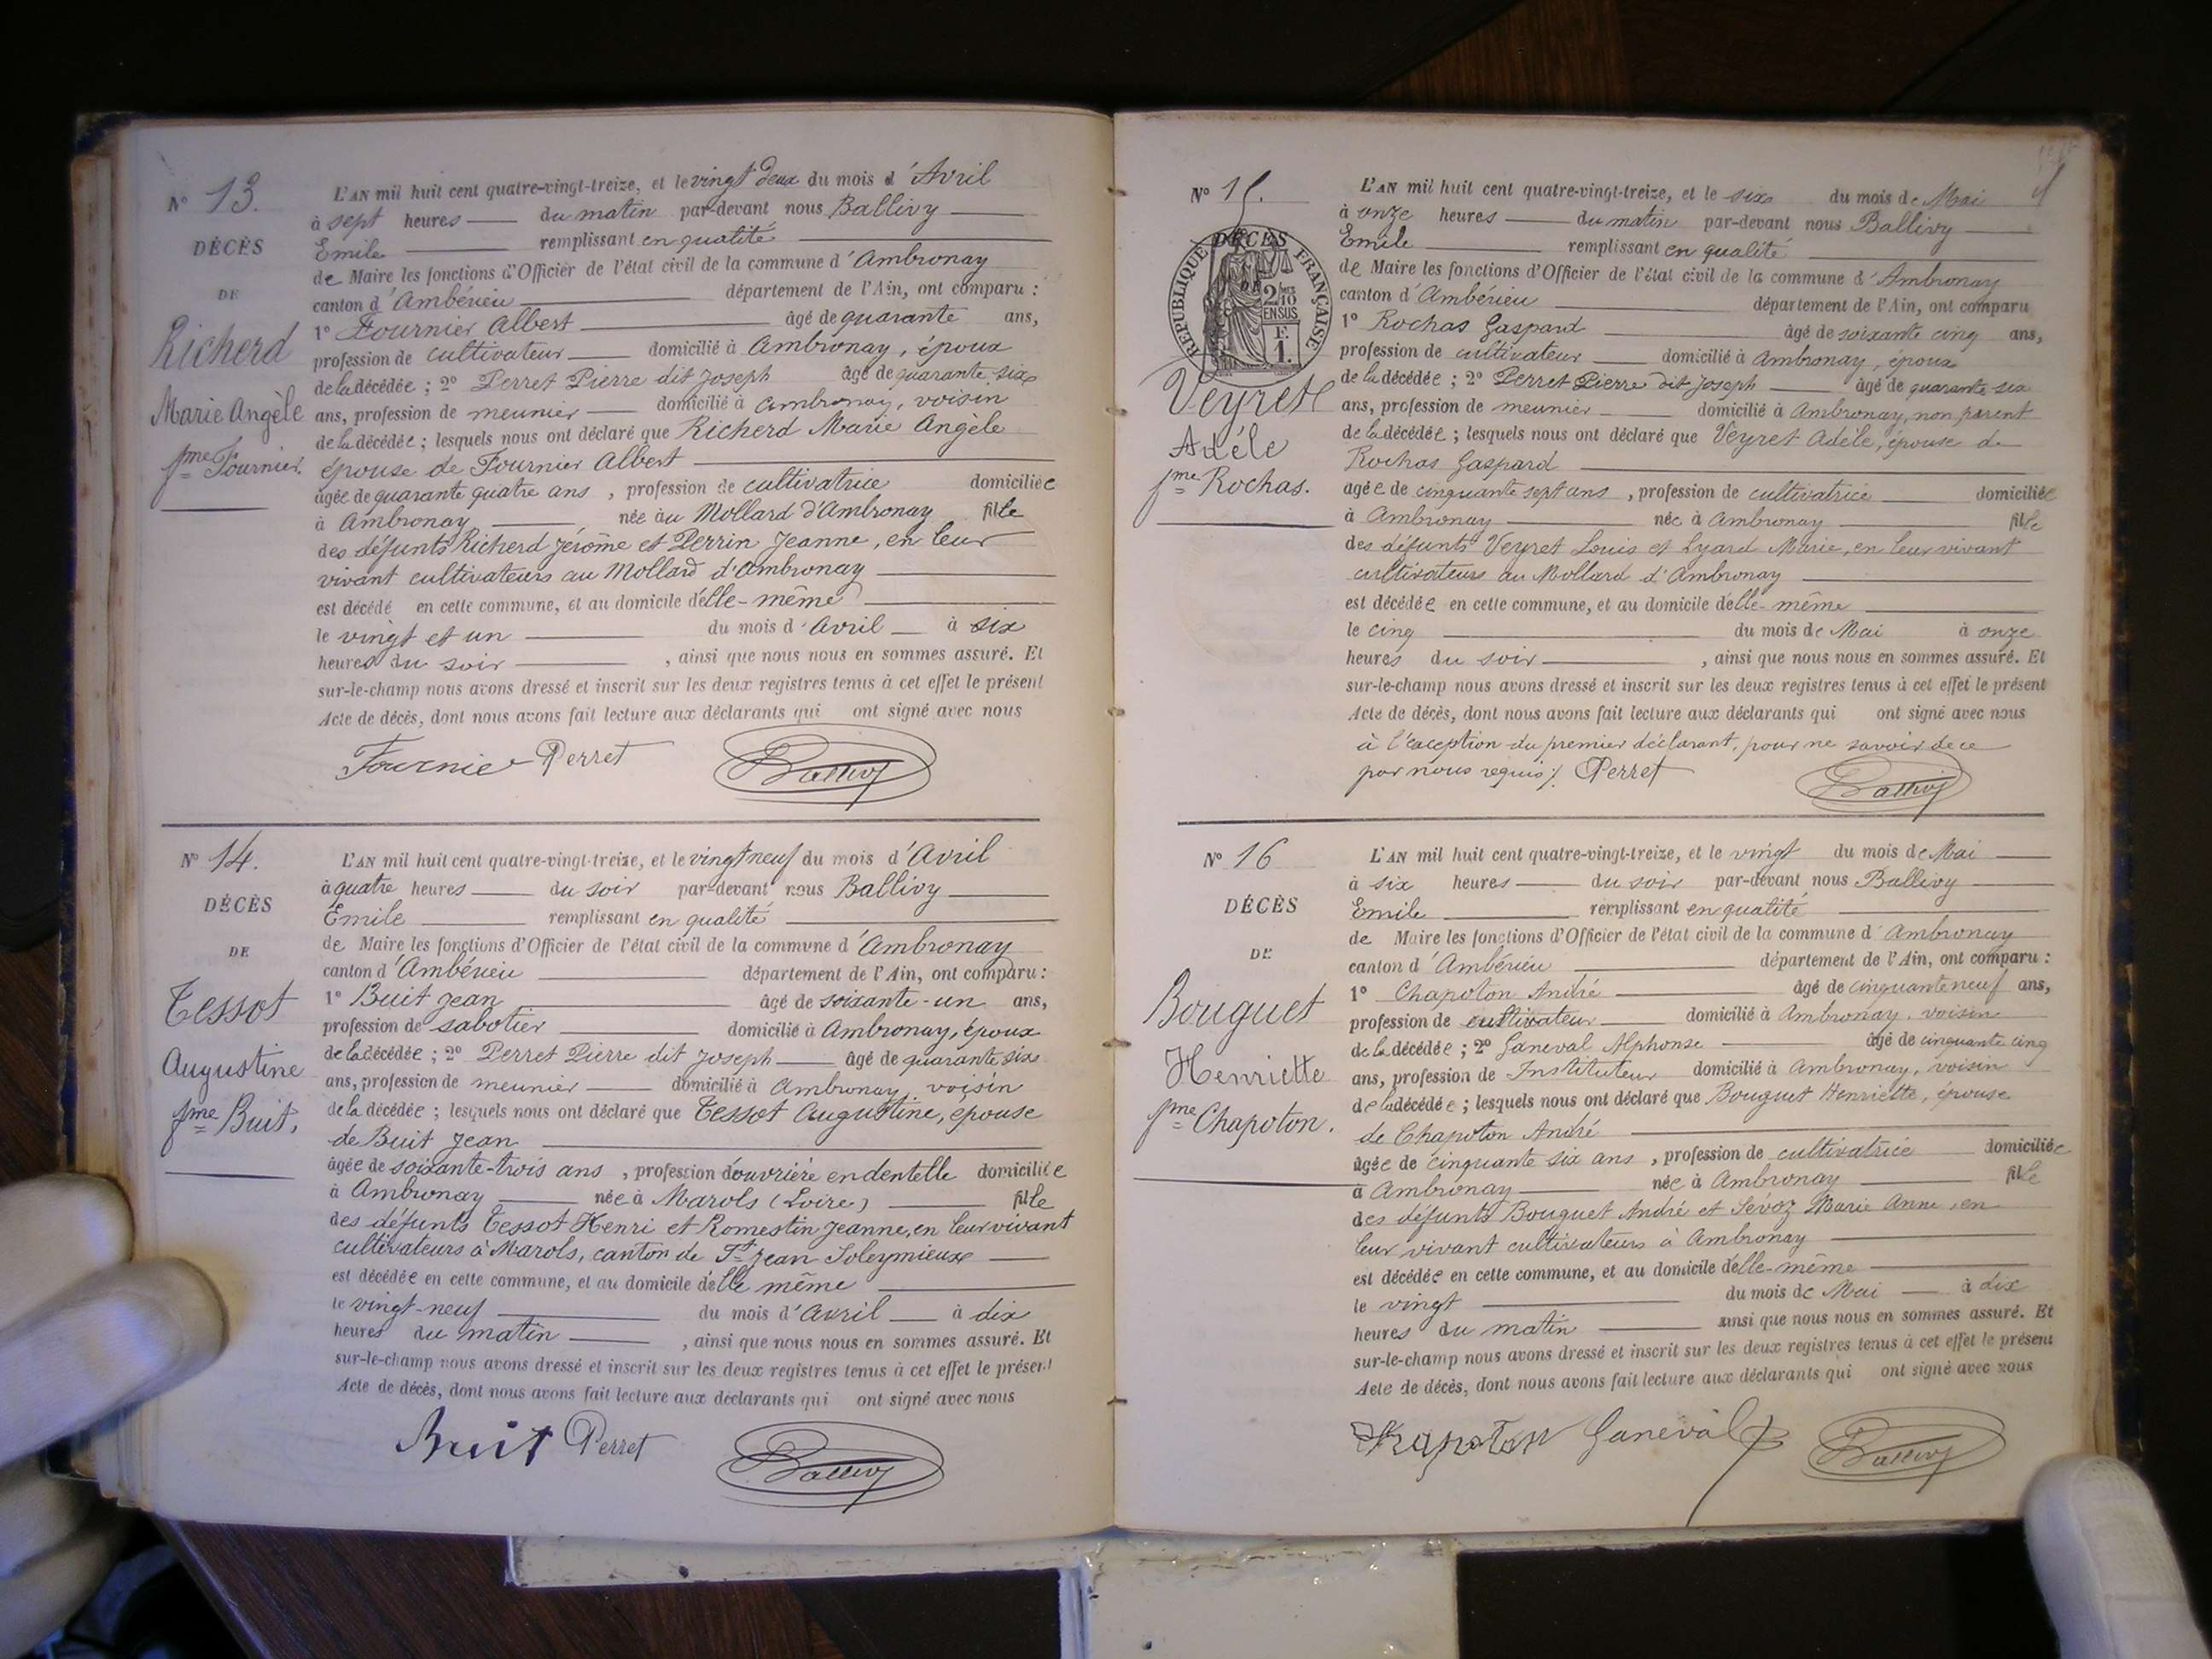 N° 13.
DÉCÈS
DE
Richerd
Marie Angèle
fme Fournier.
L'AN mil huit cent quatre-vingt-treize, et le vingt deux du mois d'Avril
à sept heures du matin par-devant nous Ballivy
Emile remplissant en qualité
de Maire les fonctions d'Officier de l'état civil de la commune d'Ambronay
canton d'Ambérieu département de l'Ain, ont comparu :
1° Fournier Albert âgé de quarante ans,
profession de cultivateur domicilié à Ambronay, époux
de la décédée ; 2° Perret Pierre dit Joseph âgé de quarante six
ans, profession de meunier domicilié à Ambronay, voisin
de la décédée ; lesquels nous ont déclaré que Richerd Marie Angèle
épouse de Fournier Albert
âgée de quarante quatre ans, profession de cultivatrice domiciliée
à Ambronay née au Mollard d'Ambronay fille
des défunts Richerd Jérôme et Perrin Jeanne, en leur
vivant cultivateurs au Mollard d'Ambronay
est décédé en cette commune, et au domicile d'elle-même
le vingt et un du mois d'Avril à six
heures du soir, ainsi que nous nous en sommes assuré. Et
sur-le-champ nous avons dressé et inscrit sur les deux registres tenus à cet effet le présent
Acte de décès, dont nous avons fait lecture aux déclarants qui ont signé avec nous
Fournier Perret Ballivy
N° 14.
DÉCÈS
DE
Tessot
Augustine
fme Buit,
L'AN mil huit cent quatre-vingt-treize, et le vingt neuf du mois d'Avril
à quatre heures du soir par-devant nous Ballivy
Emile remplissant en qualité
de Maire les fonctions d'Officier de l'état civil de la commune d'Ambronay
canton d'Ambérieu département de l'Ain, ont comparu :
1° Buit Jean âgé de soixante-un ans,
profession de sabotier domicilié à Ambronay, époux
de la décédée ; 2° Perret Pierre dit Joseph âgé de quarante six
ans, profession de meunier domicilié à Ambronay, voisin
de la décédée ; lesquels nous ont déclaré que Tessot Augustine, épouse
de Buit Jean
âgée de soixante-trois ans, profession d'ouvrière en dentelle domiciliée
à Ambronay née à Marols (Loire) fille
des défunts Tessot Henri et Romestin Jeanne, en leur vivant
cultivateurs à Marols, canton de St Jean Soleymieux
est décédée en cette commune, et au domicile d'elle même
le vingt-neuf du mois d'Avril à dix
heures du matin, ainsi que nous nous en sommes assuré. Et
sur-le-champ nous avons dressé et inscrit sur les deux registres tenus à cet effet le présent
Acte de décès, dont nous avons fait lecture aux déclarants qui ont signé avec nous
Buit Perret Ballivy
N° 15.
DÉCÈS
RÉPUBLIQUE FRANÇAISE
2/10 EN SUS
F. 1.
Veyret
Adèle
fme Rochas.
L'AN mil huit cent quatre-vingt-treize, et le six du mois de Mai
à onze heures du matin par-devant nous Ballivy
Emile remplissant en qualité
de Maire les fonctions d'Officier de l'état civil de la commune d'Ambronay
canton d'Ambérieu département de l'Ain, ont comparu
1° Rochas Gaspard âgé de soixante cinq ans,
profession de cultivateur domicilié à Ambronay, époux
de la décédée ; 2° Perret Pierre dit Joseph âgé de quarante six
ans, profession de meunier domicilié à Ambronay, non parent
de la décédée ; lesquels nous ont déclaré que Veyret Adèle, épouse de
Rochas Gaspard
âgée de cinquante sept ans, profession de cultivatrice domiciliée
à Ambronay née à Ambronay fille
des défunts Veyret Louis et Lyard Marie, en leur vivant
cultivateurs au Mollard d'Ambronay
est décédée en cette commune, et au domicile d'elle-même
le cinq du mois de Mai à onze
heures du soir, ainsi que nous nous en sommes assuré. Et
sur-le-champ nous avons dressé et inscrit sur les deux registres tenus à cet effet le présent
Acte de décès, dont nous avons fait lecture aux déclarants qui ont signé avec nous
à l'exception du premier déclarant, pour ne savoir de ce
par nous requis ./. Perret Ballivy
N° 16
DÉCÈS
DE
Bouguet
Henriette
fme Chapoton.
L'AN mil huit cent quatre-vingt-treize, et le vingt du mois de Mai
à six heures du soir par-devant nous Ballivy
Emile remplissant en qualité
de Maire les fonctions d'Officier de l'état civil de la commune d'Ambronay
canton d'Ambérieu département de l'Ain, ont comparu :
1° Chapoton André âgé de cinquante neuf ans,
profession de cultivateur domicilié à Ambronay, voisin
de la décédée ; 2° Ganeval Alphonse âgé de cinquante cinq
ans, profession de Instituteur domicilié à Ambronay, voisin
de la décédée ; lesquels nous ont déclaré que Bouguet Henriette, épouse
de Chapoton André
âgée de cinquante six ans, profession de cultivatrice domiciliée
à Ambronay née à Ambronay fille
des défunts Bouguet André et Sévoz Marie Anne, en
leur vivant cultivateurs à Ambronay
est décédée en cette commune, et au domicile d'elle-même
le vingt du mois de Mai à dix
heures du matin ainsi que nous nous en sommes assuré. Et
sur-le-champ nous avons dressé et inscrit sur les deux registres tenus à cet effet le présent
Acte de décès, dont nous avons fait lecture aux déclarants qui ont signé avec nous
Chapoton Ganeval Ballivy